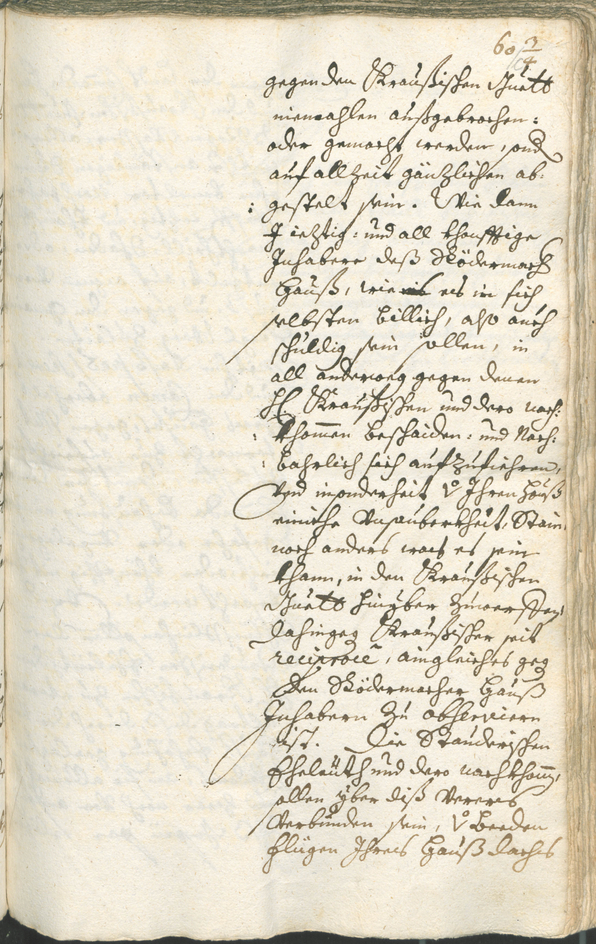 60 3/4
gegen den Kraußischen Guett
niemahlen außgebrochen:
oder gemacht werden, sond
auf allzeit gänzlichen ab:
gestelt sein. Wie dann
iezig: und all khonfftige
Inhabere deß Rödermach
Hauß, wie es in sich
selbsten billich, also auch
schuldig sein sollen, in
all anderweg gegen denen
H: Kraußischen und dero nach:
khomen beschaiden: und Nach:
bahrlich sich aufzufiehren,
Und insonderheit V Ihren Hauß
einiche Unsauberkheit, Stain
noch anders was es sein
khann, in den Kraußischen
Guett hinyber zuwerffen,
dahingeg Kraußischer seits
reciproce, aingleiches geg
den Rödermacher Hauß
Inhabern zu observiern
ist. Die Stauderischen
Eheleuth und dero nachkhomen
sollen yber diß
Verbunden sein, V beeden
fliigen Ihres Hauß daches